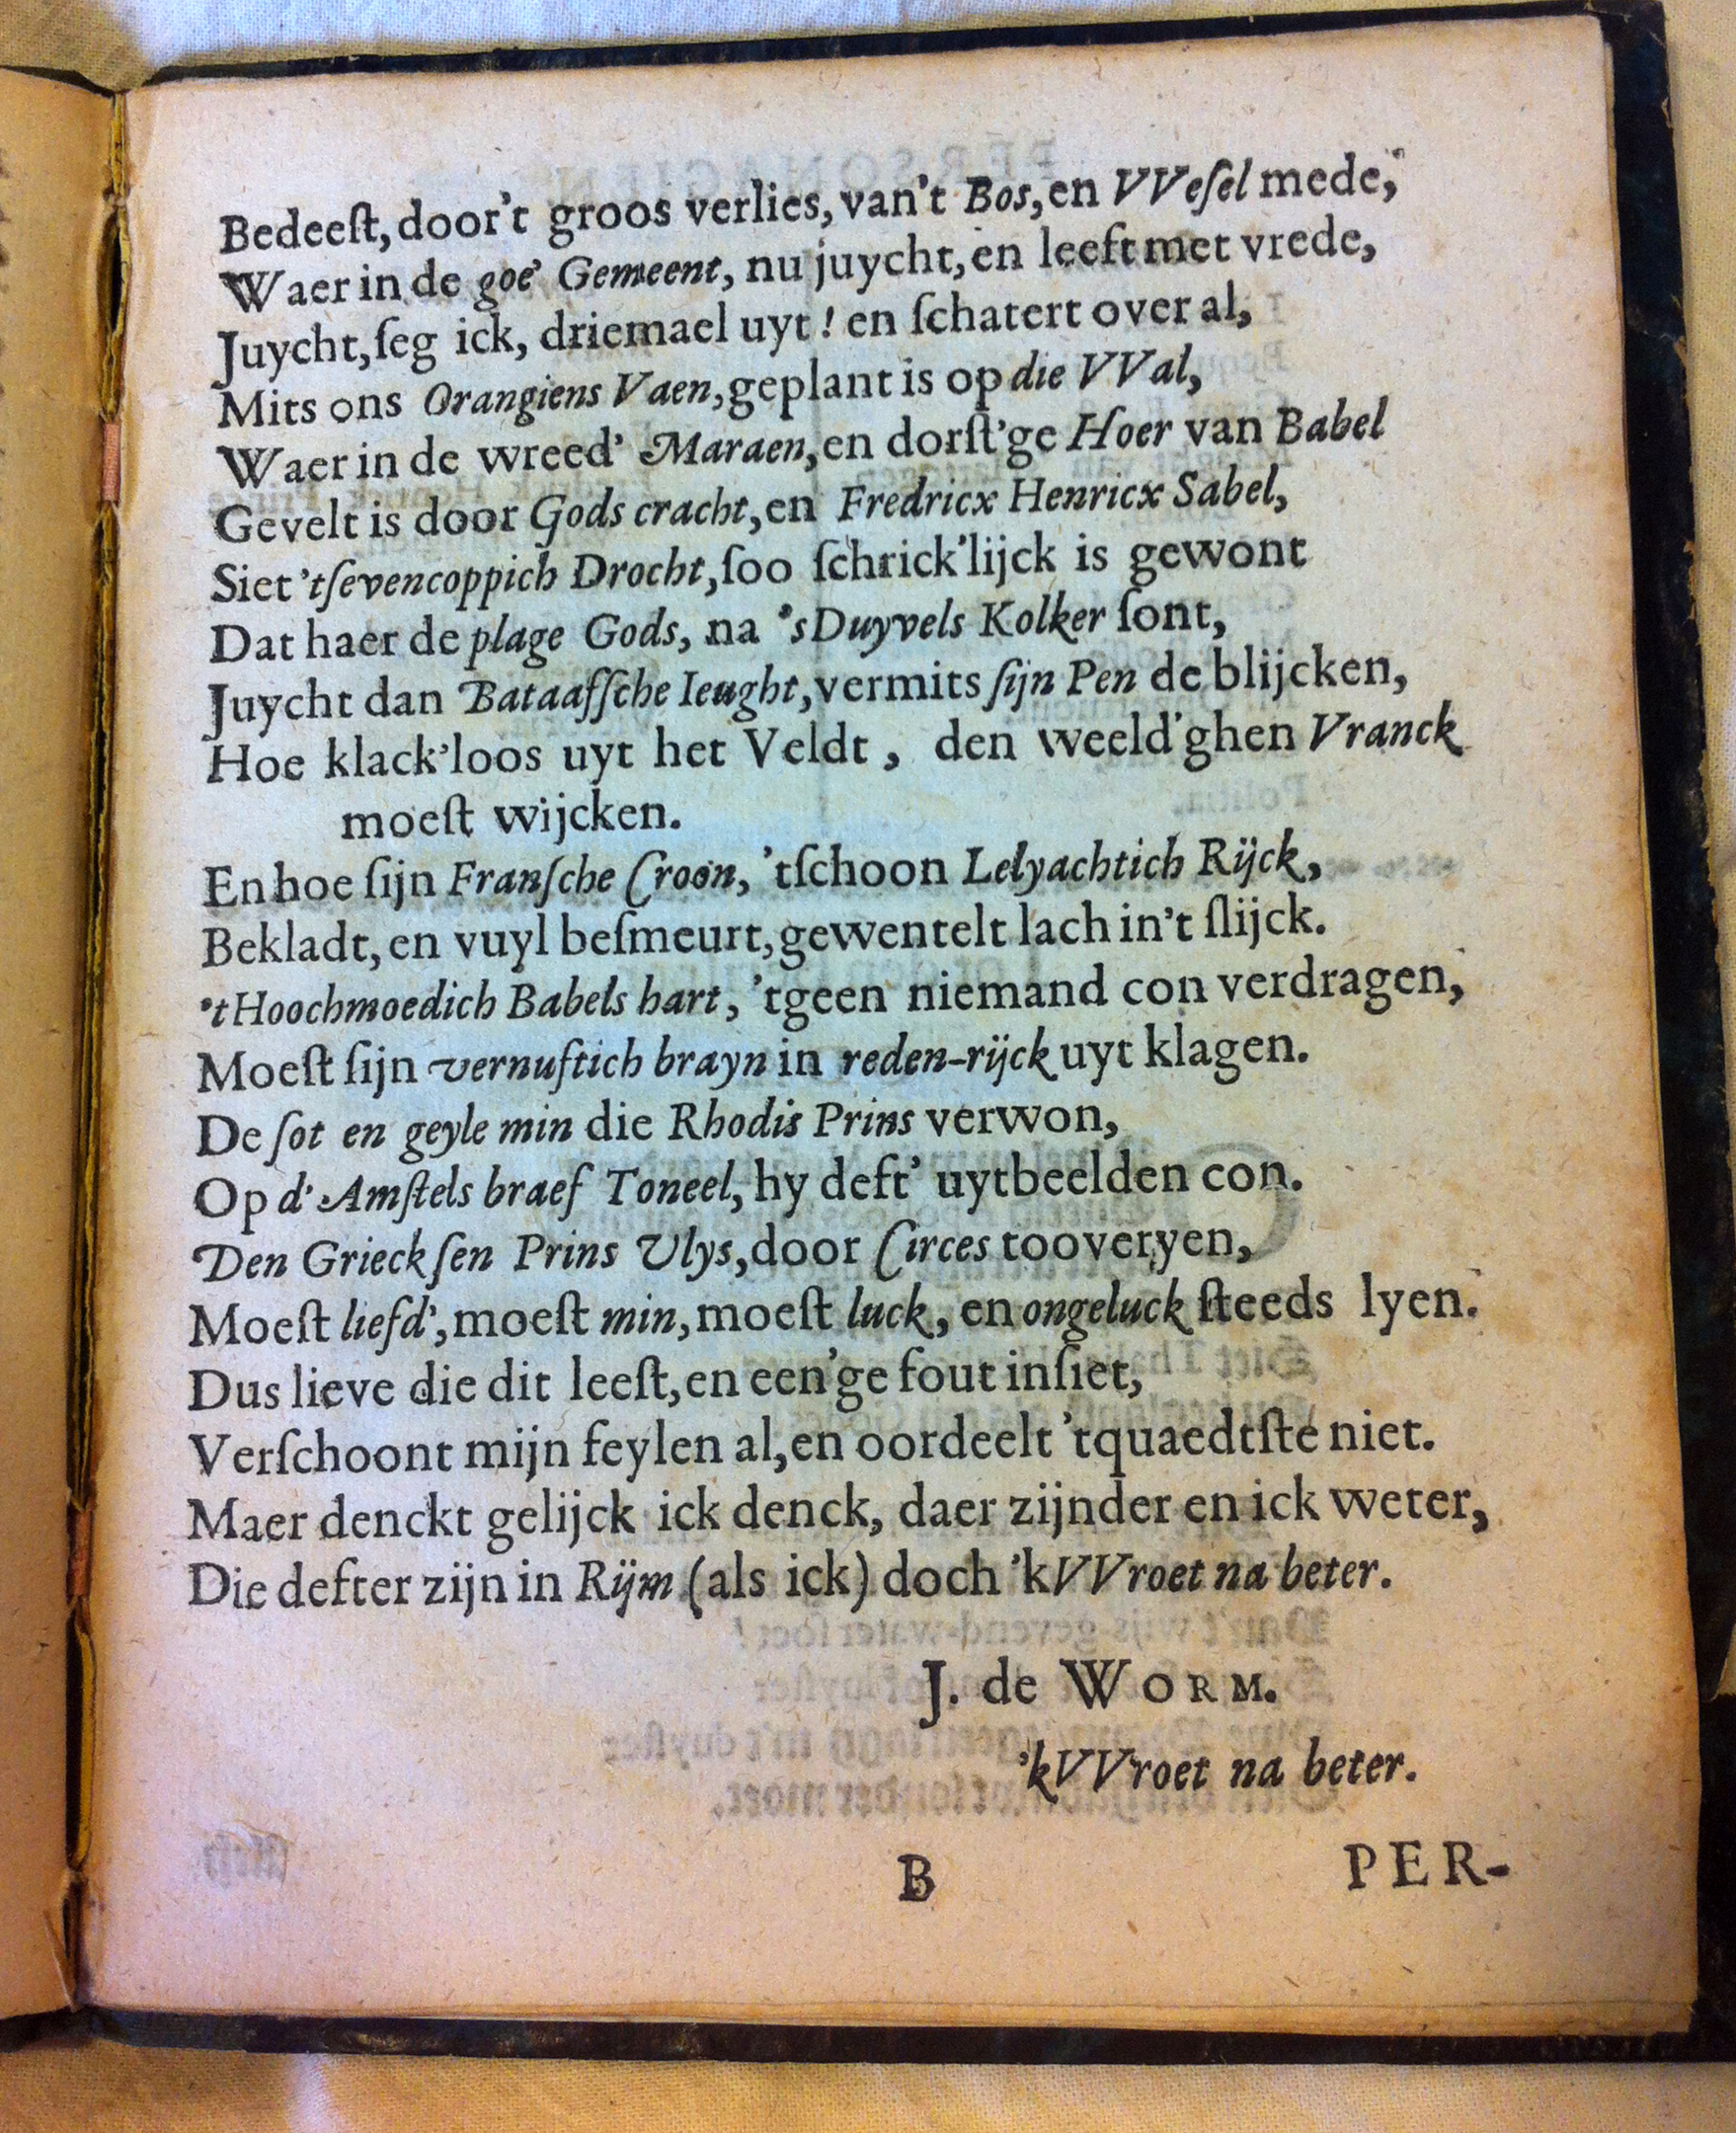 Bedeeſt, door't groos verlies, van't Bos, en VVeſel mede,
Waer in de goe' Gemeent, nu juycht, en leeft met vrede,
Juycht, ſeg ick, driemael uyt! en ſchatert over al,
Mits ons Orangiens Vaen, geplant is op die VVal,
Waer in de wreed' Maraen, en dorſt'ge Hoer van Babel
Gevelt is door Gods cracht, en Fredricx Henricx Sabel,
Siet 'tſevencoppich Drocht, ſoo ſchrick'lijck is gewont
Dat haer de plage Gods, na 's Duyvels Kolker ſont,
Juycht dan Bataafſche Ieught, vermits ſijn Pen de blijcken,
Hoe klack'loos uyt het Veldt, den weeld'ghen Vranck
moeſt wijcken.
En hoe ſijn Franſche Croon, 'tſchoon Lelyachtich Rijck,
Bekladt, en vuyl beſmeurt, gewentelt lach in't ſlijck.
't Hoochmoedich Babels hart, 'tgeen niemand con verdragen,
Moeſt ſijn vernuftich brayn in reden-rijck uyt klagen.
De ſot en geyle min die Rhodis Prins verwon,
Op d' Amſtels braef Toneel, hy deft' uytbeelden con.
Den Grieckſen Prins Ulys, door Circes tooveryen,
Moeſt liefd', moeſt min, moeſt luck, en ongeluck ſteeds lyen.
Dus lieve die dit leeſt, en een'ge fout inſiet,
Verſchoont mijn feylen al, en oordeelt 'tquaedtſte niet.
Maer denckt gelijck ick denck, daer zijnder en ick weter,
Die defter zijn in Rijm (als ick) doch 'kVVroet na beter.
J. de WORM.
'kVVroet na beter.
B PER-